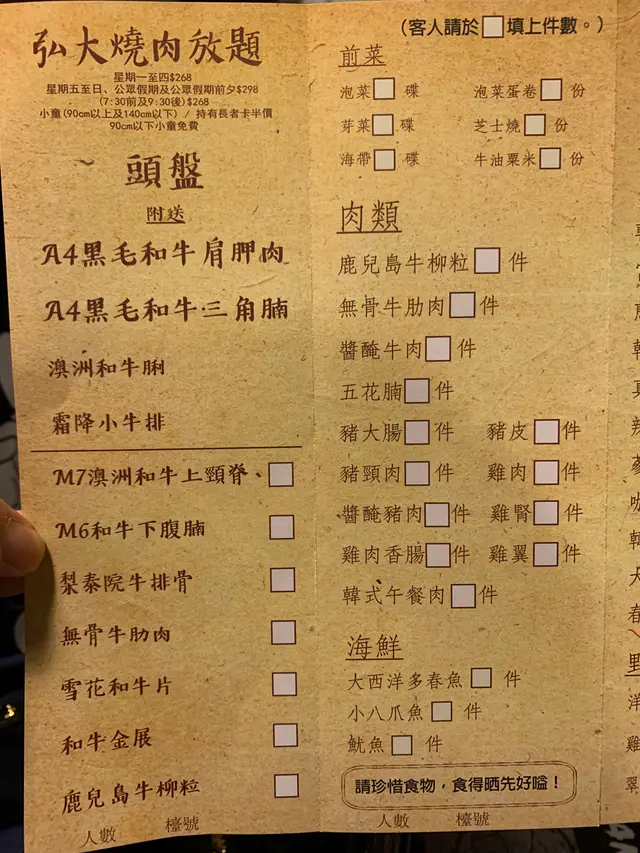 弘大燒肉放題
星期一至四$268
星期五至日、公眾假期及公眾假期前夕$298
(7:30前及9:30後)$268
小童(90cm以上及140cm以下) / 持有長者卡半價
90cm以下小童免費
頭盤
附送
A4黑毛和牛肩胛肉
A4黑毛和牛三角腩
澳洲和牛脷
霜降小牛排
M7澳洲和牛上頸脊、
M6和牛下腹腩
梨泰院牛排骨
無骨牛肋肉
雪花和牛片
和牛金展
鹿兒島牛柳粒
人數 檯號
(客人請於□填上件數。)
前菜
泡菜□碟 泡菜蛋卷□份
芽菜□碟 芝士燒□份
海帶□碟 牛油粟米□份
肉類
鹿兒島牛柳粒□件
無骨牛肋肉□件
醬醃牛肉□件
五花腩□件
豬大腸□件 豬皮□件
豬頸肉□件 雞肉□件
醬醃豬肉□件 雞腎□件
雞肉香腸□件 雞翼□件
韓式午餐肉□件
海鮮
大西洋多春魚□件
小八爪魚□件
魷魚□件
請珍惜食物，食得晒先好嗌！
人數 檯號